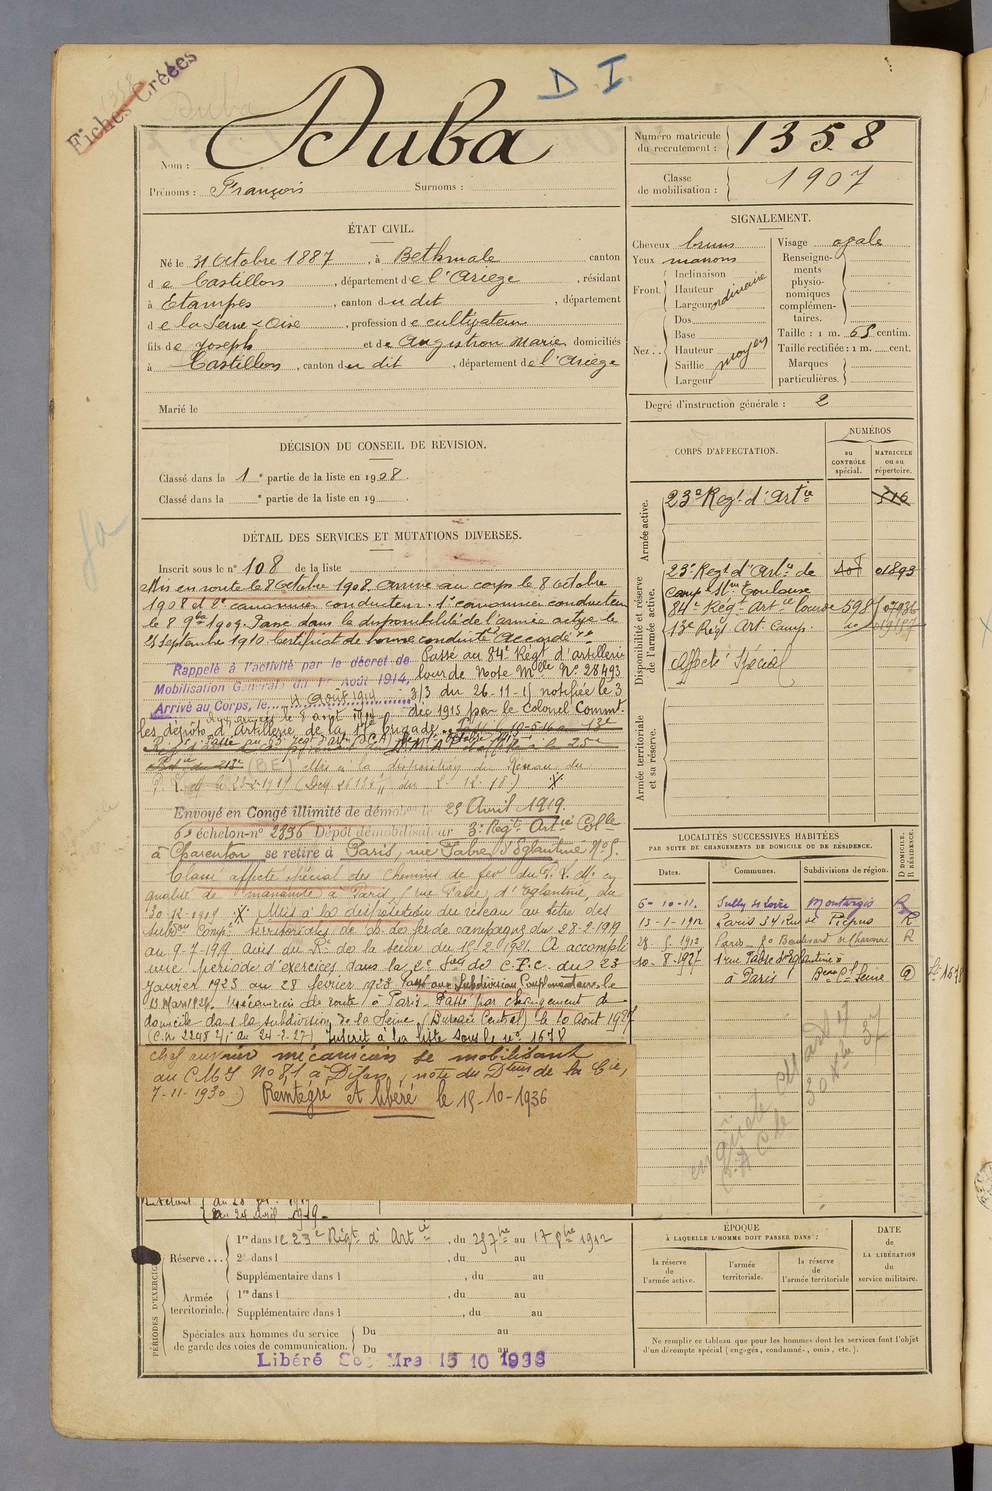 Fiches Créées
D.I.
Nom : Duba
Prénoms : François Surnoms :
Numéro matricule du recrutement : 1358
Classe de mobilisation : 1907
ÉTAT CIVIL.
Né le 31 Octobre 1887, à Bethmale canton
de Castillon, département de l'Ariège, résidant
à Étampes, canton du dit, département
de la Seine & Oise, profession de cultivateur
fils de Joseph et de Augistrou Marie domiciliés
à Castillon, canton du dit, département de l'Ariège
Marié le
SIGNALEMENT.
Cheveux bruns
Yeux marrons
Front. Inclinaison
Hauteur
Largeur ordinaire
Nez.. Dos
Base
Hauteur
Saillie moyen
Largeur
Visage ovale
Renseignements physionomiques complémentaires.
Taille : 1 m. 65 centim.
Taille rectifiée : 1 m. cent.
Marques particulières.
Degré d'instruction générale : 2
DÉCISION DU CONSEIL DE RÉVISION.
Classé dans la 1e partie de la liste en 1908.
Classé dans la e partie de la liste en 19
DÉTAIL DES SERVICES ET MUTATIONS DIVERSES.
Inscrit sous le n° 108 de la liste
Mis en route le 8 Octobre 1908. Arrivé au corps le 8 Octobre
1908 et 2e canonnier conducteur. 1er canonnier conducteur
le 8 9bre 1909. Passé dans la disponibilité de l'armée active le
25 septembre 1910. Certificat de bonne conduite Accordé
Rappelé à l'activité par le décret de
Mobilisation Générale du 1er Août 1914,
Arrivé au Corps, le 4 Août 1914
Passé au 84e Régt d'artillerie
lourde Note Mlle No 28493
3/3 du 26-11-15 notifiée le 3
déc 1915 par le Colonel Commt
les dépôts d'Artillerie de la 17e brigade.
(BE) Mis à la disposition du Réseau du
Envoyé en Congé illimité de démob le 25 Avril 1919.
6e échelon n° 2396 Dépôt démobilisateur 3e Régt Artie Colle
à Charenton se retire à Paris, rue Fabre d'Eglantine No 5.
Classé affecté spécial des Chemins de fer du P.L.M. en
qualité de manœuvre à Paris, (rue Fabre d'Eglantine, du
30-12-1919 X. Mis à la disposition du réseau au titre des
Subdons Compres territoriales de ch. de fer de campagne du 28-2-1919
au 9-7-1919 avis du Rt de la Seine du 15/2/1921. A accompli
une période d'exercices dans la 2e Son de C.F.C. du 23
Janvier 1923 au 28 février 1923. Passé aux Subdivisions Complémentaires le
13 Mars 1924. Mécanicien de route à Paris. Passé par changement de
domicile dans la subdivision de la Seine (Bureau Central) le 10 Août 1927
(C.R. 2248 2/1 du 24-2-27) Inscrit à la liste sous le n° 1678
chef ouvrier mécanicien se mobilisant
au C M I No 51 à Dijon, (note du Dteur de la Cie,
7-11-1930) Réintégré et libéré le 15-10-1936
au 24 avril 1919.
CORPS D'AFFECTATION.
NUMÉROS
au CONTRÔLE spécial.
MATRICULE ou au répertoire.
Armée active.
23e Régt d'Artie 316
Disponibilité et réserve de l'armée active.
23e Régt d'Artie de campne Toulouse 408 01893
84e Régt Artie lourde 598 07936
13e Régt Art. Camp.
Affecté Spécial
Armée territoriale et sa réserve.
LOCALITÉS SUCCESSIVES HABITÉES
PAR SUITE DE CHANGEMENTS DE DOMICILE OU DE RÉSIDENCE.
D DOMICILE. R RÉSIDENCE.
Dates. Communes. Subdivisions de région.
6-10-11. Sully s/ Loire Montargis R
13-1-1912 Paris 34 Rue de Picpus R
28-5-1912 Paris 80 Boulevard de Charonne R
10-8-1927 1 rue Fabre d'Eglantine
à Paris Beau Cal Seine D 1678
PÉRIODES D'EXERCICES
Réserve... 1re dans le 23e Régt d'Artie, du 25 7bre au 17 8bre 1912
2e dans l , du au
Supplémentaire dans l , du au
Armée territoriale. 1re dans l , du au
Supplémentaire dans l , du au
Spéciales aux hommes du service de garde des voies de communication. Du au
Du au
Libéré 15 10 1936
ÉPOQUE
À LAQUELLE L'HOMME DOIT PASSER DANS :
la réserve de l'armée active.
l'armée territoriale.
la réserve de l'armée territoriale
DATE DE LA LIBÉRATION du service militaire.
Ne remplir ce tableau que pour les hommes dont les services font l'objet
d'un décompte spécial (engagés, condamnés, omis, etc.).